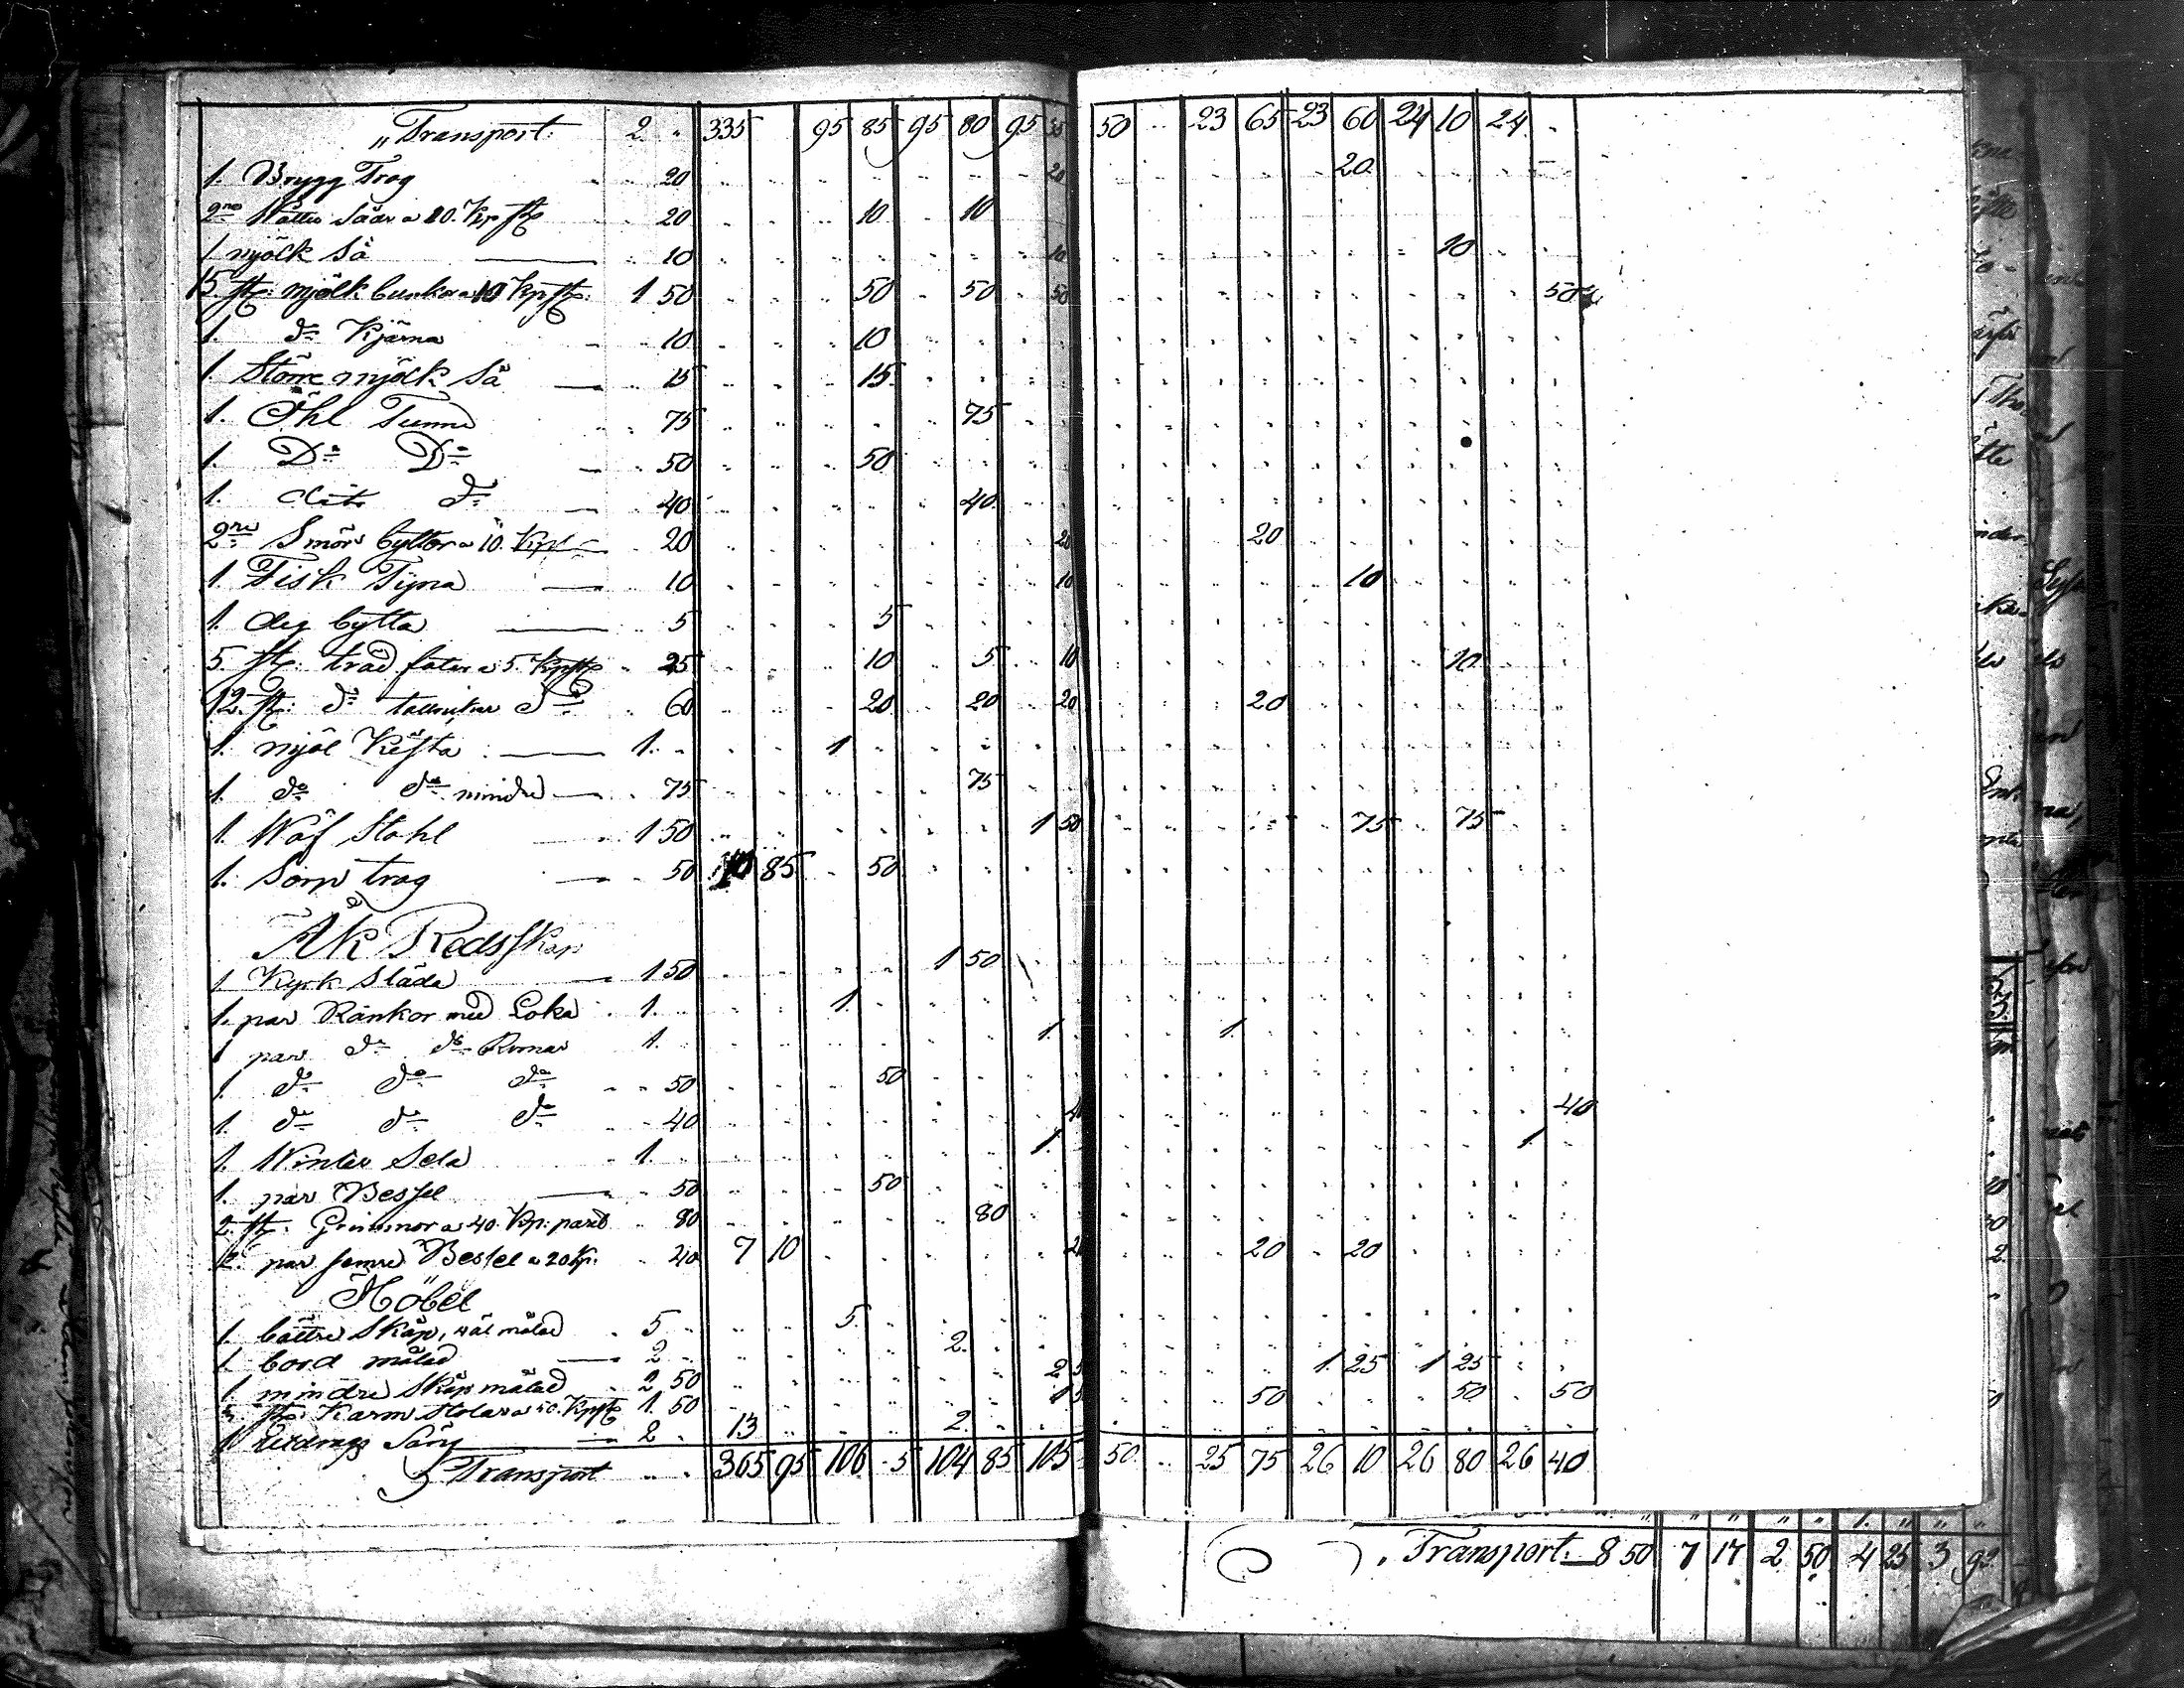 „Transport: 2 „ 335 95 85 95 80 95 35 50 „ 23 65 23 60 24 10 24 „
1. Brygg Trog 20 20 20
2ne Watten Såar a 20. Kp st 20 10 10
1 mjölk Så 10 10 10
15 st: mjölk bunkar a 10 Kp st: 1 50 50 50 50 50
1. do Kjärna 10 10
1. Större mjölk Så 15 15
1. Öhl Tunna 75 75
1. Do Do 50 50
1. dito do 40 40
2ne Smör byttor a 10. Kp 20 20 20
1. Fisk Tyna 10 10 10
1. deg bytta 5 5
5 st: träd fater a 5. Kp st 25 10 5 10 10
12 st: do tallrikar do 60 20 20 20 20
1. mjöl Kista 1. 1
1. do do mindre 75 75
1. Wäf Stohl 1 50 1 50 75 75
1. Sörp trog 50 85 50
Åk Redsskap
1 Kyrk Släda 1 50 1 50
1. par Ränkor med Loka 1. 1.
1 par do do Remar 1. 1. 1.
1. do do do 50 50
1. do do do 40 40 40
1. Winter Sela 1. 1. 1
1. par Bessel 50 50
2 st: Grimmor a 40. Kp: paret 80 80
2 par semre Bessel a 20 Kp: 40 7 10 20 20
Möbel
1. bättre Skåp, wäl målad 5 5.
1. bord målad 2 2.
1. mindre Skåp målad 2 50 2 5 1. 25 1 25
st: Karm Stolar a 50. Kp st 1. 50 1 5 50 50 50
1 utdrags Säng 2 13 2.
Transport „ 365 95 106 5 104 85 105 50 „ 25 75 26 10 26 80 26 40
Transport: 8 50 7 17 2 50 4 25 3 92